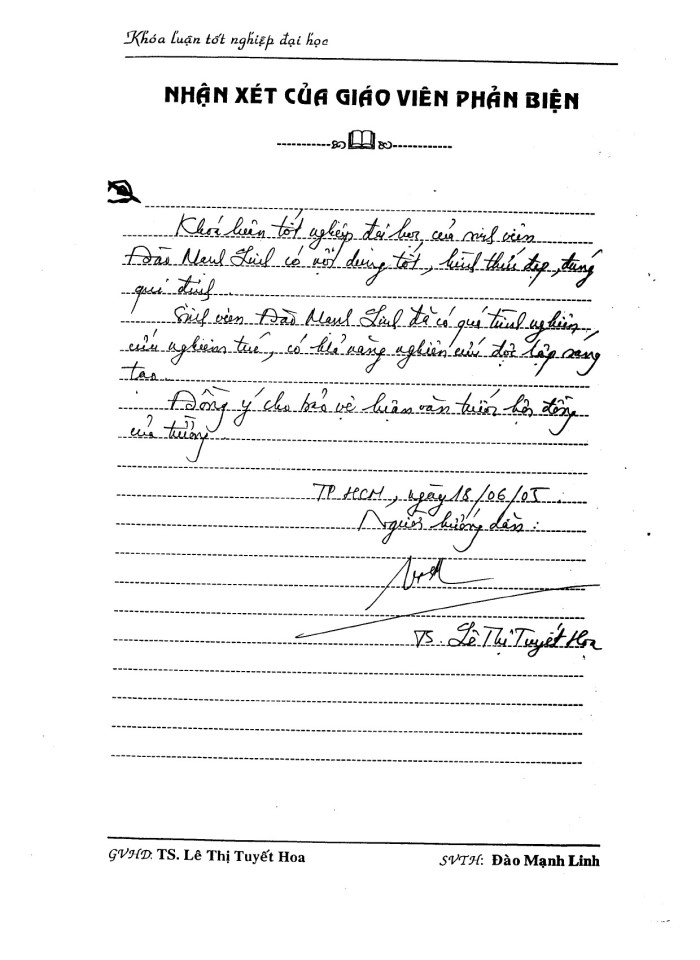 Khóa luận tốt nghiệp đại học
NHẬN XÉT CỦA GIÁO VIÊN PHẢN BIỆN
Khoá luận tốt nghiệp đại học của sinh viên
Đào Mạnh Linh có nội dung tốt, hình thức đẹp, đúng
qui định
Sinh viên Đào Mạnh Linh đã có quá trình nghiên
cứu nghiêm túc, có khả năng nghiên cứu độc lập sáng
tạo.
Đồng ý cho bảo vệ luận văn trước hội đồng
của trường
TP HCM, ngày 18/06/05.
Người hướng dẫn:
TS. Lê Thị Tuyết Hoa
GVHD: TS. Lê Thị Tuyết Hoa SVTH: Đào Mạnh Linh